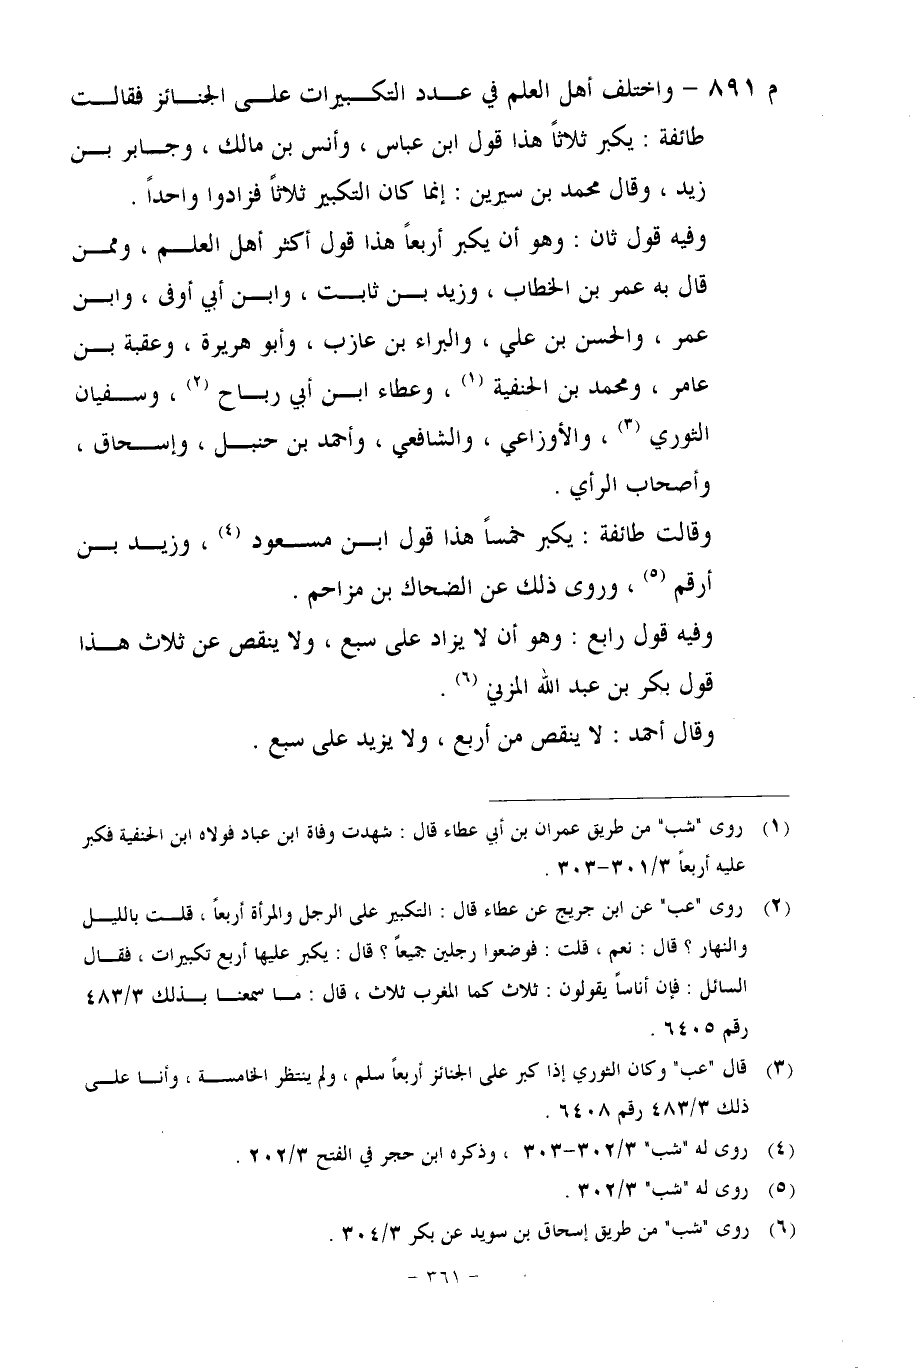 م ٨٩١ – واختلف أهل العلم في عدد التكبيرات على الجنائز فقالت
طائفة : يكبر ثلاثاً هذا قول ابن عباس ، وأنس بن مالك ، وجابر بن
زيد ، وقال محمد بن سيرين : إنما كان التكبير ثلاثاً فزادوا واحداً .
وفيه قول ثان : وهو أن يكبر أربعاً هذا قول أكثر أهل العلم ، وممن
قال به عمر بن الخطاب ، وزيد بن ثابت ، وابن أبي أوفى ، وابن
عمر ، والحسن بن علي ، والبراء بن عازب ، وأبو هريرة ، وعقبة بن
عامر ، ومحمد بن الحنفية (١) ، وعطاء ابن أبي رباح (٢) ، وسفيان
الثوري (٣) ، والأوزاعي ، والشافعي ، وأحمد بن حنبل ، وإسحاق ،
وأصحاب الرأي .
وقالت طائفة : يكبر خمساً هذا قول ابن مسعود (٤) ، وزيد بن
أرقم (٥) ، وروى ذلك عن الضحاك بن مزاحم .
وفيه قول رابع : وهو أن لا يزاد على سبع ، ولا ينقص عن ثلاث هذا
قول بكر بن عبد الله المزني (٦) .
وقال أحمد : لا ينقص من أربع ، ولا يزيد على سبع .
(١) روى "شب" من طريق عمران بن أبي عطاء قال : شهدت وفاة ابن عباد فولاه ابن الحنفية فكبر
عليه أربعاً ٣٠١/٣–٣٠٣ .
(٢) روى "عب" عن ابن جريج عن عطاء قال : التكبير على الرجل والمرأة أربعاً ، قلت بالليل
والنهار ؟ قال : نعم ، قلت : فوضعوا رجلين جميعاً ؟ قال : يكبر عليها أربع تكبيرات ، فقال
السائل : فإن أناساً يقولون : ثلاث كما المغرب ثلاث ، قال : ما سمعنا بذلك ٤٨٣/٣
رقم ٦٤٠٥ .
(٣) قال "عب" وكان الثوري إذا كبر على الجنائز أربعاً سلم ، ولم ينتظر الخامسة ، وأنا على
ذلك ٤٨٣/٣ رقم ٦٤٠٨ .
(٤) روى له "شب" ٣٠٢/٣–٣٠٣ ، وذكره ابن حجر في الفتح ٢٠٢/٣ .
(٥) روى له "شب" ٣٠٢/٣ .
(٦) روى "شب" من طريق إسحاق بن سويد عن بكر ٣٠٤/٣ .
– ٣٦١ –